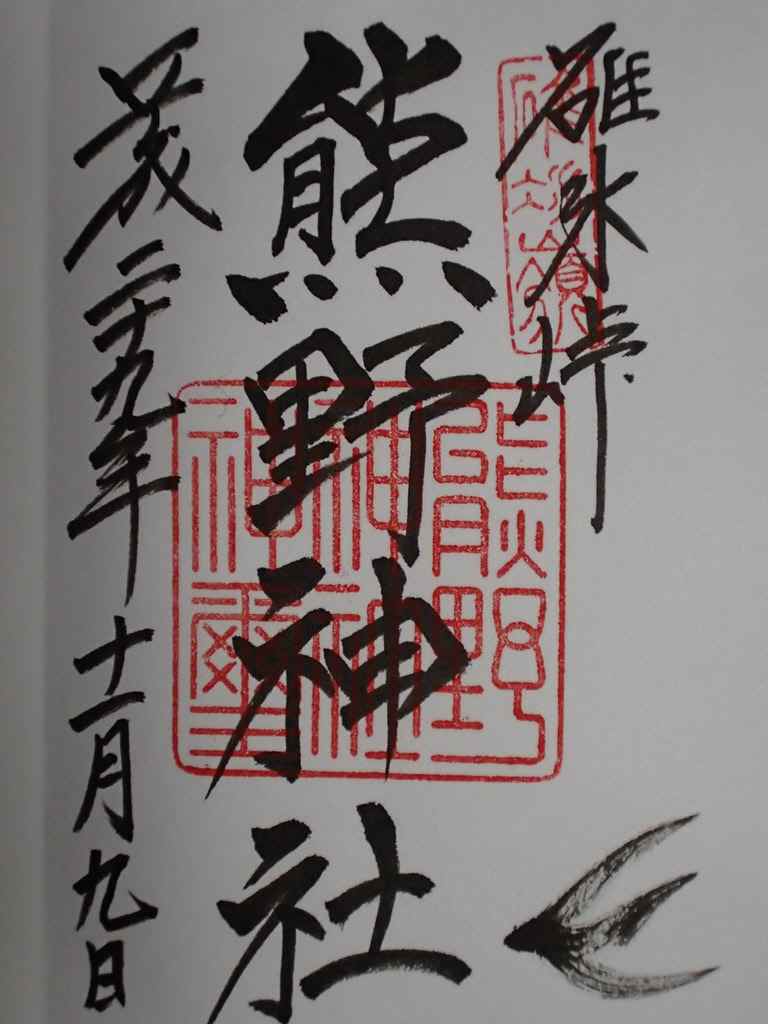 碓氷峠
碓氷嶺
熊野神社
熊野
神社
神璽
平成二十九年十一月九日